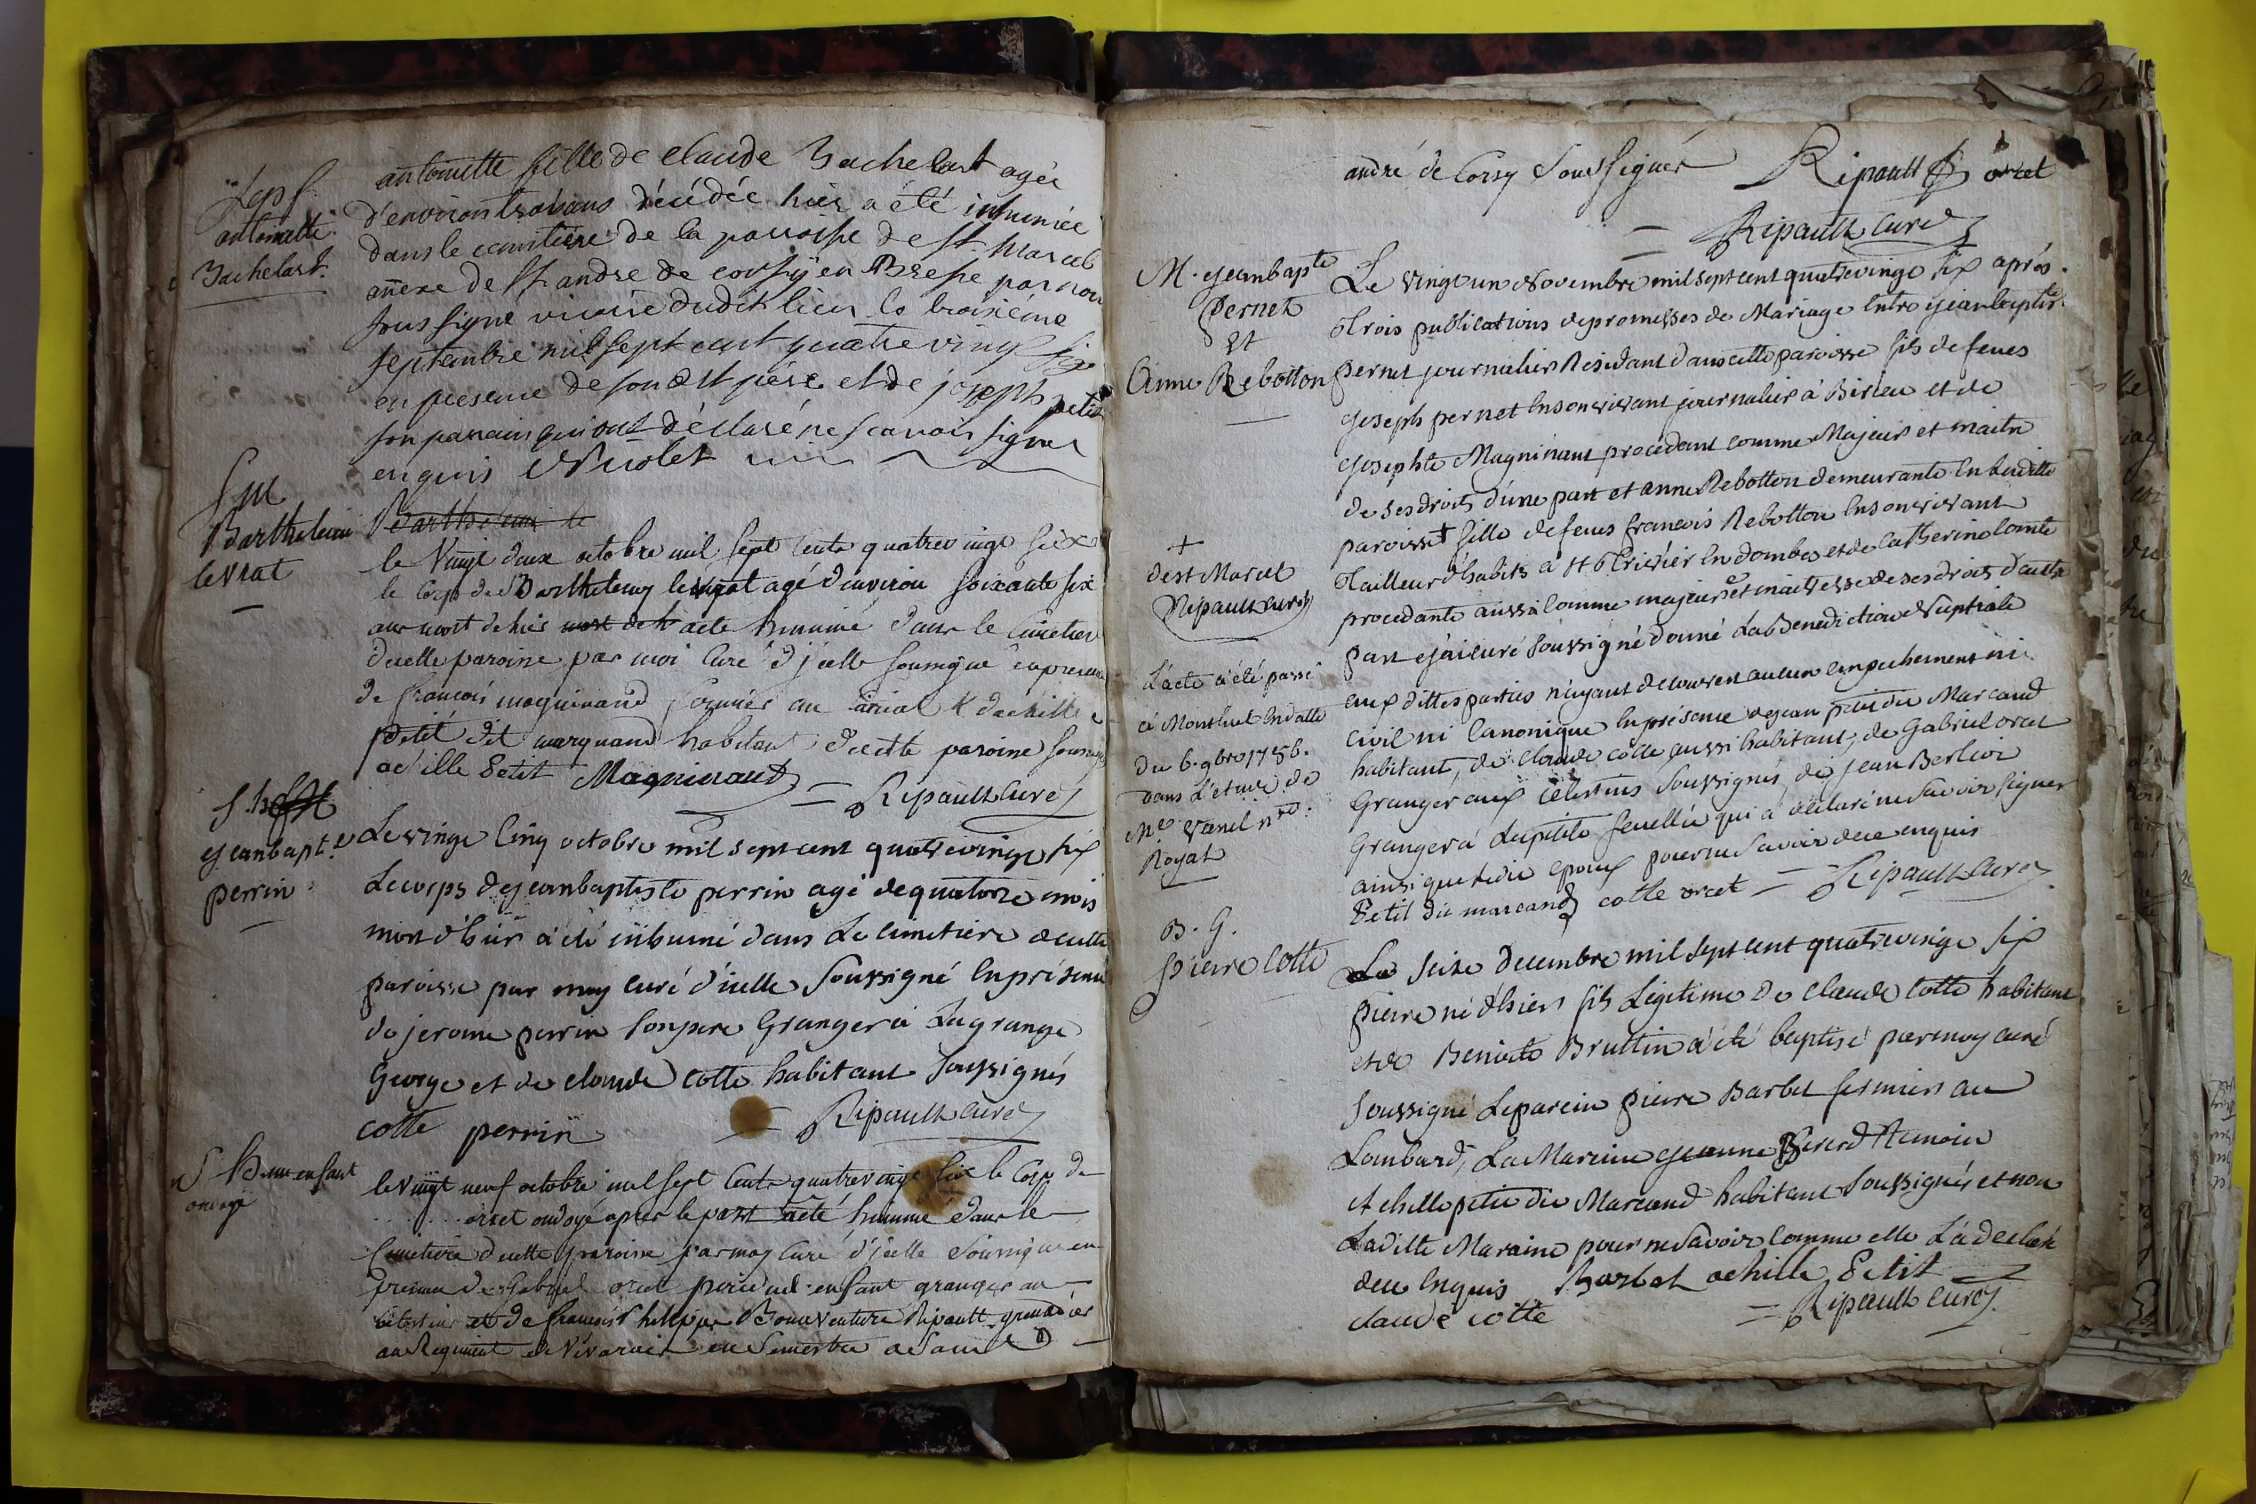 Sep. f.
antoinette
Bachelart.
antoinette fille de claude Bachelart agée
d'environ trois ans décédée hier a été inhumée
dans le cimetiere de la paroisse de st marcel
annexe de st andre de corsy en Bresse par nous
sous signe vicaire dudit lieu le troisieme
septembre mil sept cent quatre vingt six
en presence de son dit pére et de joseph petit
son parain qui ont déclaré ne scavoir signer
enquis Nicolet
S m
Barthelemi
levrat
Barthelemi le
le Vingt deux octobre mil sept cents quatre vingt six
le Corps de Barthelemy levrat agé d'environ soixante six
ans mort de hier a ete Inhumé dans le Cimetiere
decette paroisse par moi Curé d'icelle soussigné en presence
de francois magninand fermier au & d'achille
petit dit marquand habitant decette paroisse soussignés
achille Petit Magninand = Ripault Curé
S. h
jeanbapt.e
perrin
Le vingt Cinq octobre mil sept cent quatrevingt six
Le corps de jeanbaptiste perrin agé de quatorze mois
mort d'hier a été inhumé dans Le cimetiere decette
paroisse par moy curé d'icelle Soussigné En présence
de jerome perrin son pere Granger à La grange
George et de claude cotte habitant soussignés
cotte perrin = Ripault curé
S h un enfant
ondoyé
le Vingt neuf octobre mil sept Cents quatre vingt six le Corp de
orset ondoyé apres le part a eté Inhumé dans le
Cimetiere decette paroisse par moy Curé d'icelle Soussigné en
presence de Gabriel orcet pere dud. enfant granger au
celestins et de francois philippe Bonaventure Ripault grenadier
au Regiment de Vivarais en Semestre a Saint
andré de Corsy Soussignés Ripault orcet
= Ripault Curé
M. jeanbapte
Pernet
Et
Anne Rebotton
Le vingt un Novembre mil sept cent quatrevingt six aprés
Trois publications de promesses de Mariage Entre jeanbaptiste
pernet journalier Residant dans cette paroisse fils de feus
joseph pernet En son vivant journalier à Birieu et de
josephte Magninant procédant comme Majeur et maitre
de ses droits d'une part et anne Rebotton demeurante En Laditte
paroisse + fille de feus francois Rebotton En son vivant
Tailleur d'habits à st Trivier En dombes et de Catherine Comte
procedante aussi Comme majeure et maitresse de ses droits d'autre
part j'ai curé Soussigné donné La Benediction Nuptiale
aux dittes parties n'ayant decouvert aucun Empechement ni
Civil ni Canonique En présence de jean petit dit Marcand
habitant, de Claude cotte aussi habitant, de Gabriel orcet
Granger aux celestins Soussignés, de jean Berlioz
Granger à La petite feuillée qui a déclaré ne Savoir Signer
ainsi que Ledit epoux pour ne Savoir de ce enquis
Petit dit marcand cotte orcet = Ripault Curé
+
de st Marcel
Ripault curé
L'acte a été passé
à Montluel En datte
du 6. 9bre 1786.
dans L'etude de
Me n.re
Royal
B. G.
pierre Cotte
Le seize decembre mil sept cent quatrevingt six
pierre né d'hier fils Légitime de Claude Cotte habitant
et de Benoite Bruttin a été baptisé par moy curé
soussigné Le parein pierre Barbet fermier au
Lombard, La Mareine jeanne Bererd Temoin
Achille petit dit Marcand habitant Soussignés et non
Laditte Maraine pour ne Savoir Comme elle L'a declaré
de ce Enquis Barbet achille Petit
claude cotte = Ripault curé